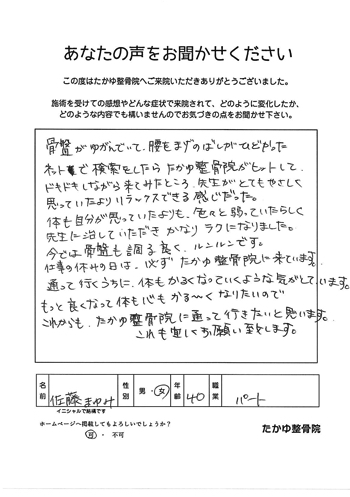 あなたの声をお聞かせください
この度はたかゆ整骨院へご来院いただきありがとうございました。
施術を受けての感想やどんな症状で来院されて、どのように変化したか、
どのような内容でも構いませんのでお気づきの点をお聞かせ下さい。
骨盤がゆがんでいて、腰をまげのばしがひどかった
ネット で検索をしたら たかゆ整骨院がヒットして、
ドキドキしながら来てみたところ、先生がとてもやさしく
思っていたよりリラックスできる感じだった。
体も自分が思っていたよりも、色々と弱っていたらしく
先生に治していただき かなり ラクになりました。
今では骨盤も調る良く、ルンルンです。
仕事の休みの日は、必ず たかゆ整骨院に来ています。
通って行くうちに、体もかるくなっていくような気がしています。
もっと良くなって体も心も かる〜く なりたいので
これからも、たかゆ整骨院に通って行きたいと思います。
これも宜しくお願い致します。
名前 佐藤まゆみ 性別 男・女 年齢 40 職業 パート
イニシャルで結構です
ホームページへ掲載してもよろしいでしょうか?
可・不可
たかゆ整骨院